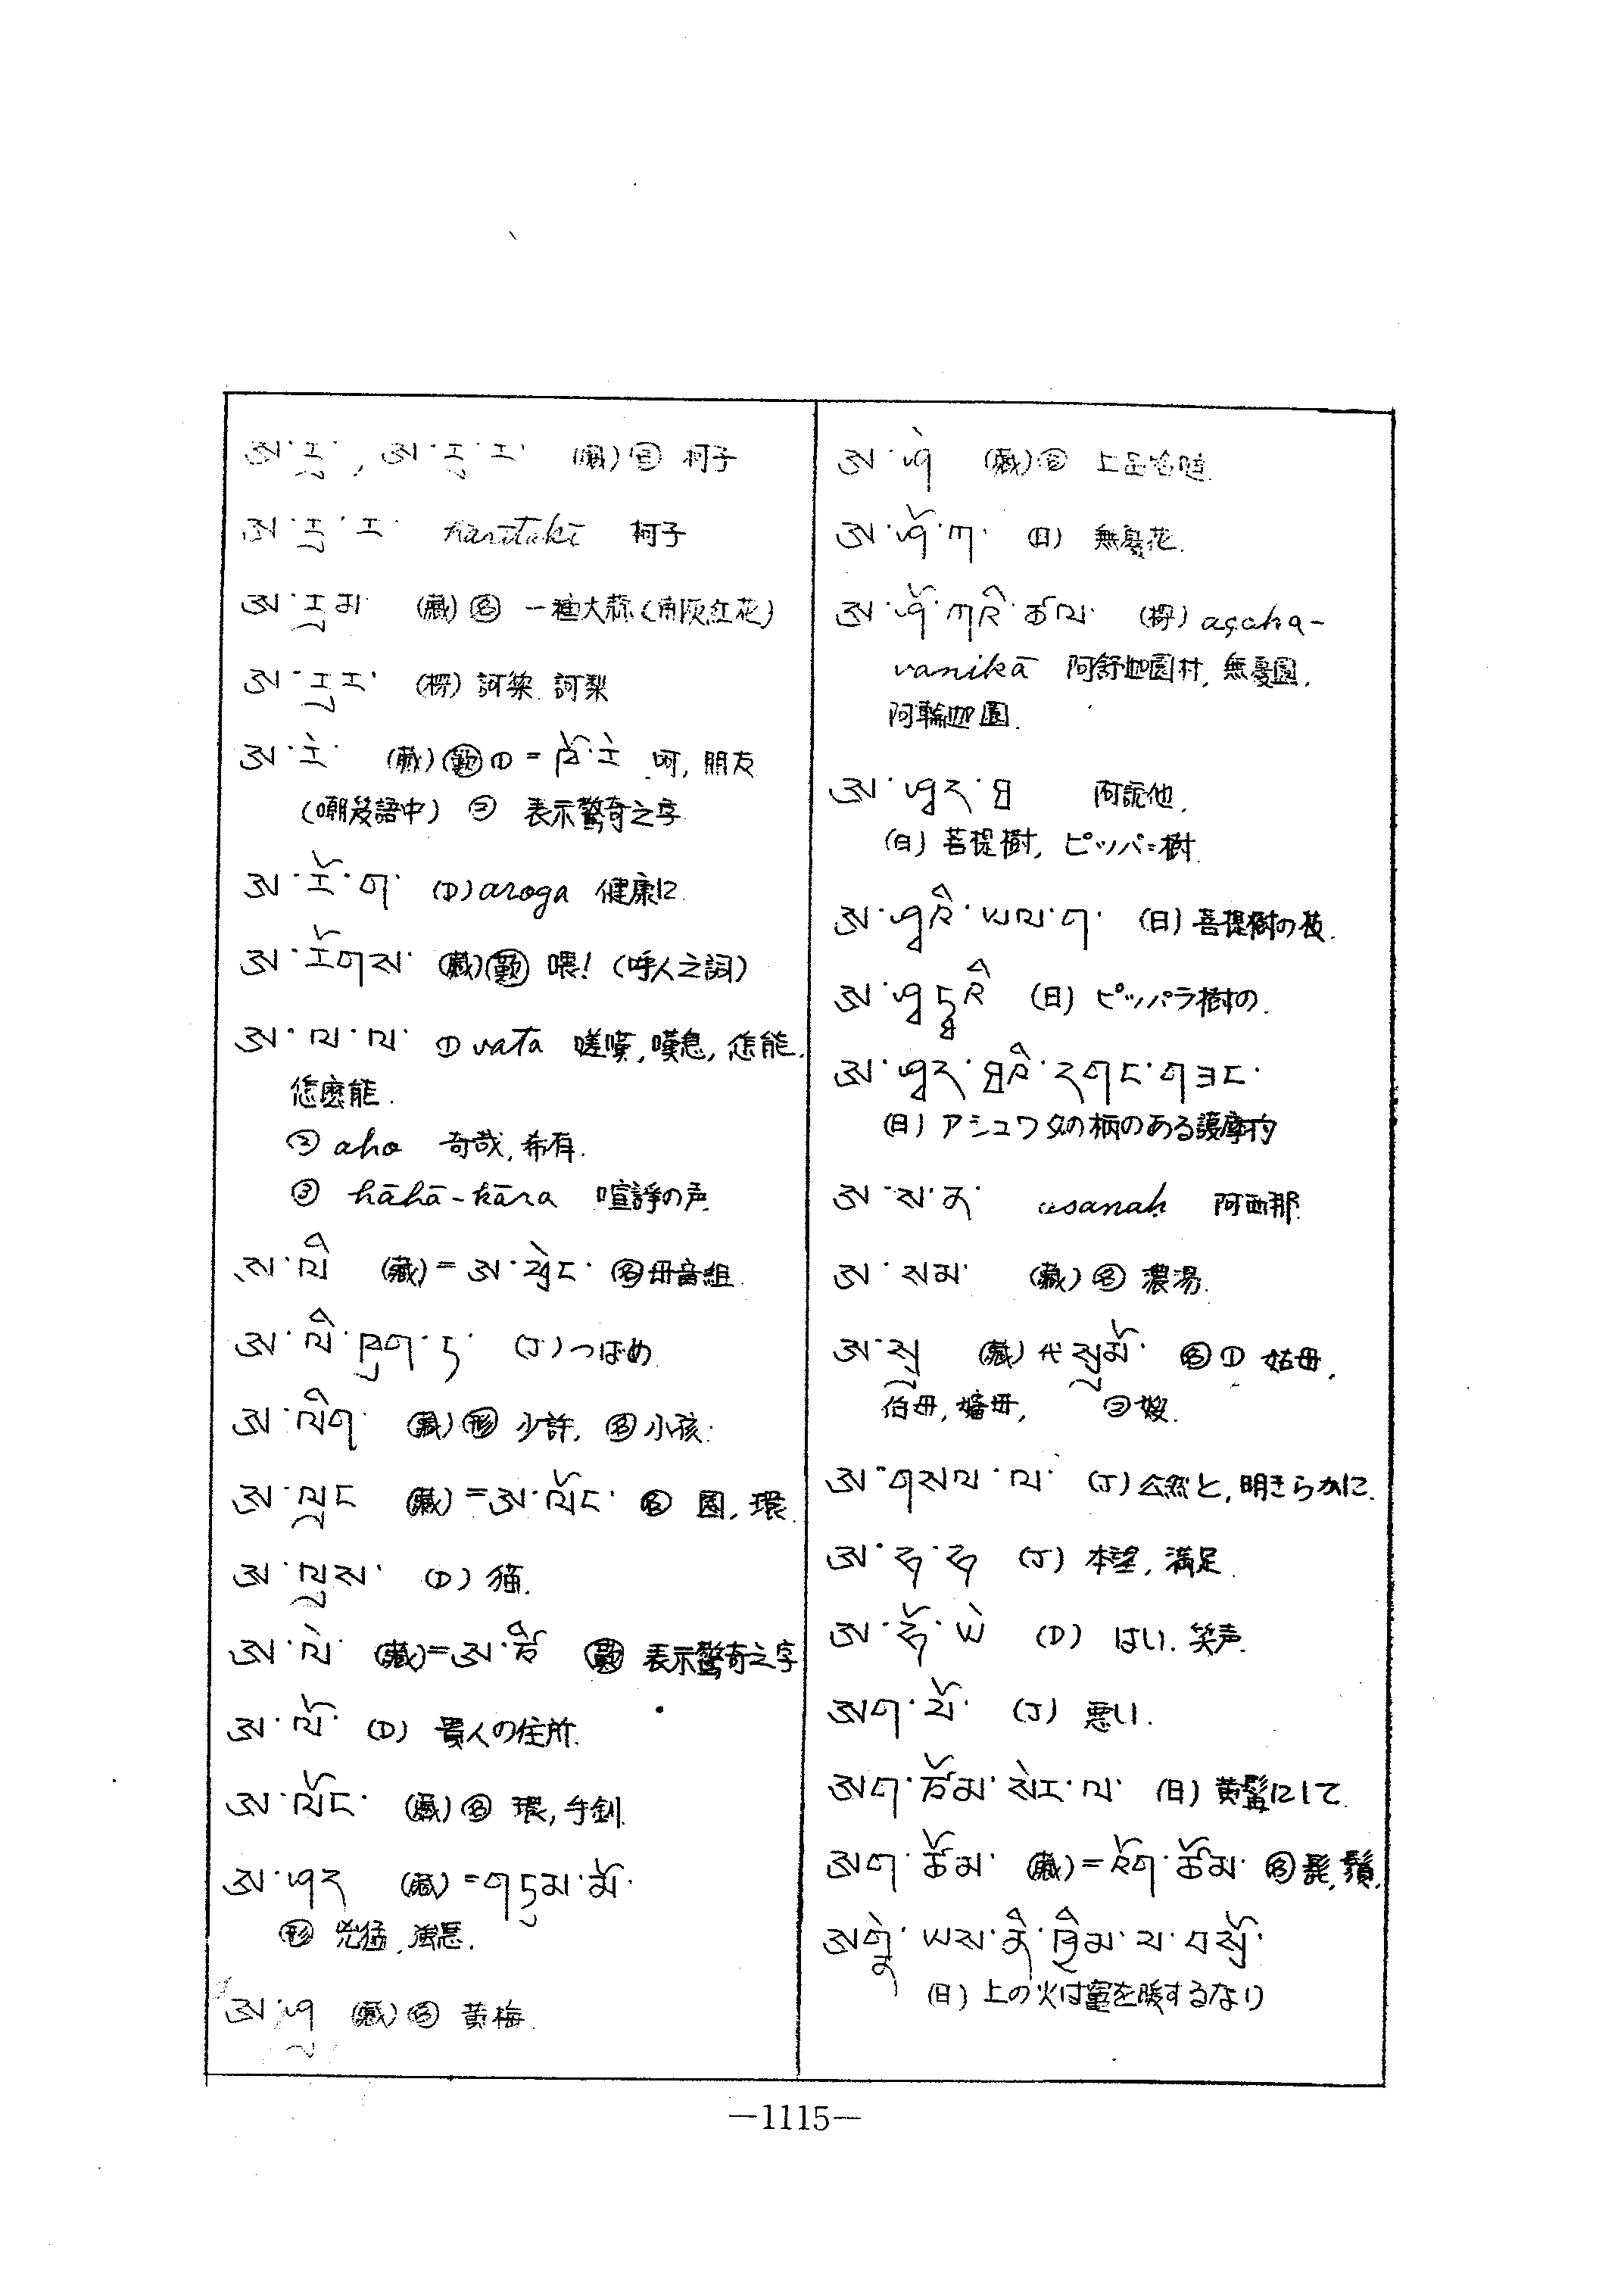 ཨ་རུ་, ཨ་རུ་ར་ (藏)㊔ 柯子
ཨ་རུ་ར་ harītakī 柯子
ཨ་རུམ་ (藏)㊔ 一種大蒜(南灰红花)
ཨ་རུར་ (榜) 訶黎 訶梨
ཨ་རེ་ (藏)㊣① = ཁོ་རེ 呵, 朋友
(嘲笑語中) ② 表示驚奇之字
ཨ་རོ་ག་ (D) aroga 健康に.
ཨ་རོགས་ (藏) 喂! (呼人之詞)
ཨ་ལ་ལ་ ① vata 嗟嘆, 嘆息, 怎能,
怎麽能.
② aho 奇哉, 希有.
③ hāhā-kāra 喧諍の声
ཨ་ལི (藏) = ཨ་ཕྲེང་ 名 母音組.
ཨ་ལི་ཁུག་ཏ་ (J) つばめ
ཨ་ལིག་ (藏) 形 少許, 名 小孩.
ཨ་ལུང (藏) = ཨ་ལོང་ 名 圈, 環.
ཨ་ལུས་ (D) 猫.
ཨ་ལེ་ (藏) = ཨ་ 歎 表示驚奇之字
ཨ་ལོ་ (D) 貴人の住所.
ཨ་ལོང་ (藏) 名 環, 手釧.
ཨ་ཤར (藏) = གཏུམ་མོ་
形 兇猛, 強悪.
ཨ་ཤུ (藏) 名 黄梅.
ཨ་ཤེ (藏) 名
ཨ་ཤོ་ཀ་ (日) 無憂花.
ཨ་ཤོ་ཀའི་ཚལ་ (榜) açaha-
vanikā 阿舒迦園村, 無憂園.
阿輸迦園.
ཨ་ཤྭད་ཐ 阿説他.
(日) 菩提樹, ピッパラ樹.
ཨ་ཤྭའི་ཡལ་ག་ (日) 菩提樹の枝.
ཨ་ཤྭཏྠའི (日) ピッパラ樹の.
ཨ་ཤྭད་ཐའི་དགང་གཟང་
(日) アシュワタの柄のある護摩杓
ཨ་ས་ན་ asanah 阿西那.
ཨ་སམ་ (藏) 名 濃湯.
ཨ་སུ (藏) 代 སུ་མོ་ 名 ① 姑母,
伯母, 嬸母, ② 嫂.
ཨ་གསལ་ལ་ (J) 公然と, 明きらかに.
ཨ་ཧ་ཧ (J) 本望, 満足.
ཨ་ཧོ་ཡེ (D) はい. 笑声.
ཨག་པོ་ (J) 悪い.
ཨག་ཚོམ་སེར་ལ་ (日) 黄髯にして.
ཨག་ཚོམ་ (藏) = འོག་ཚོམ་ 名 髭, 鬚.
(日) 上の火は竈を暖するなり
—1115—